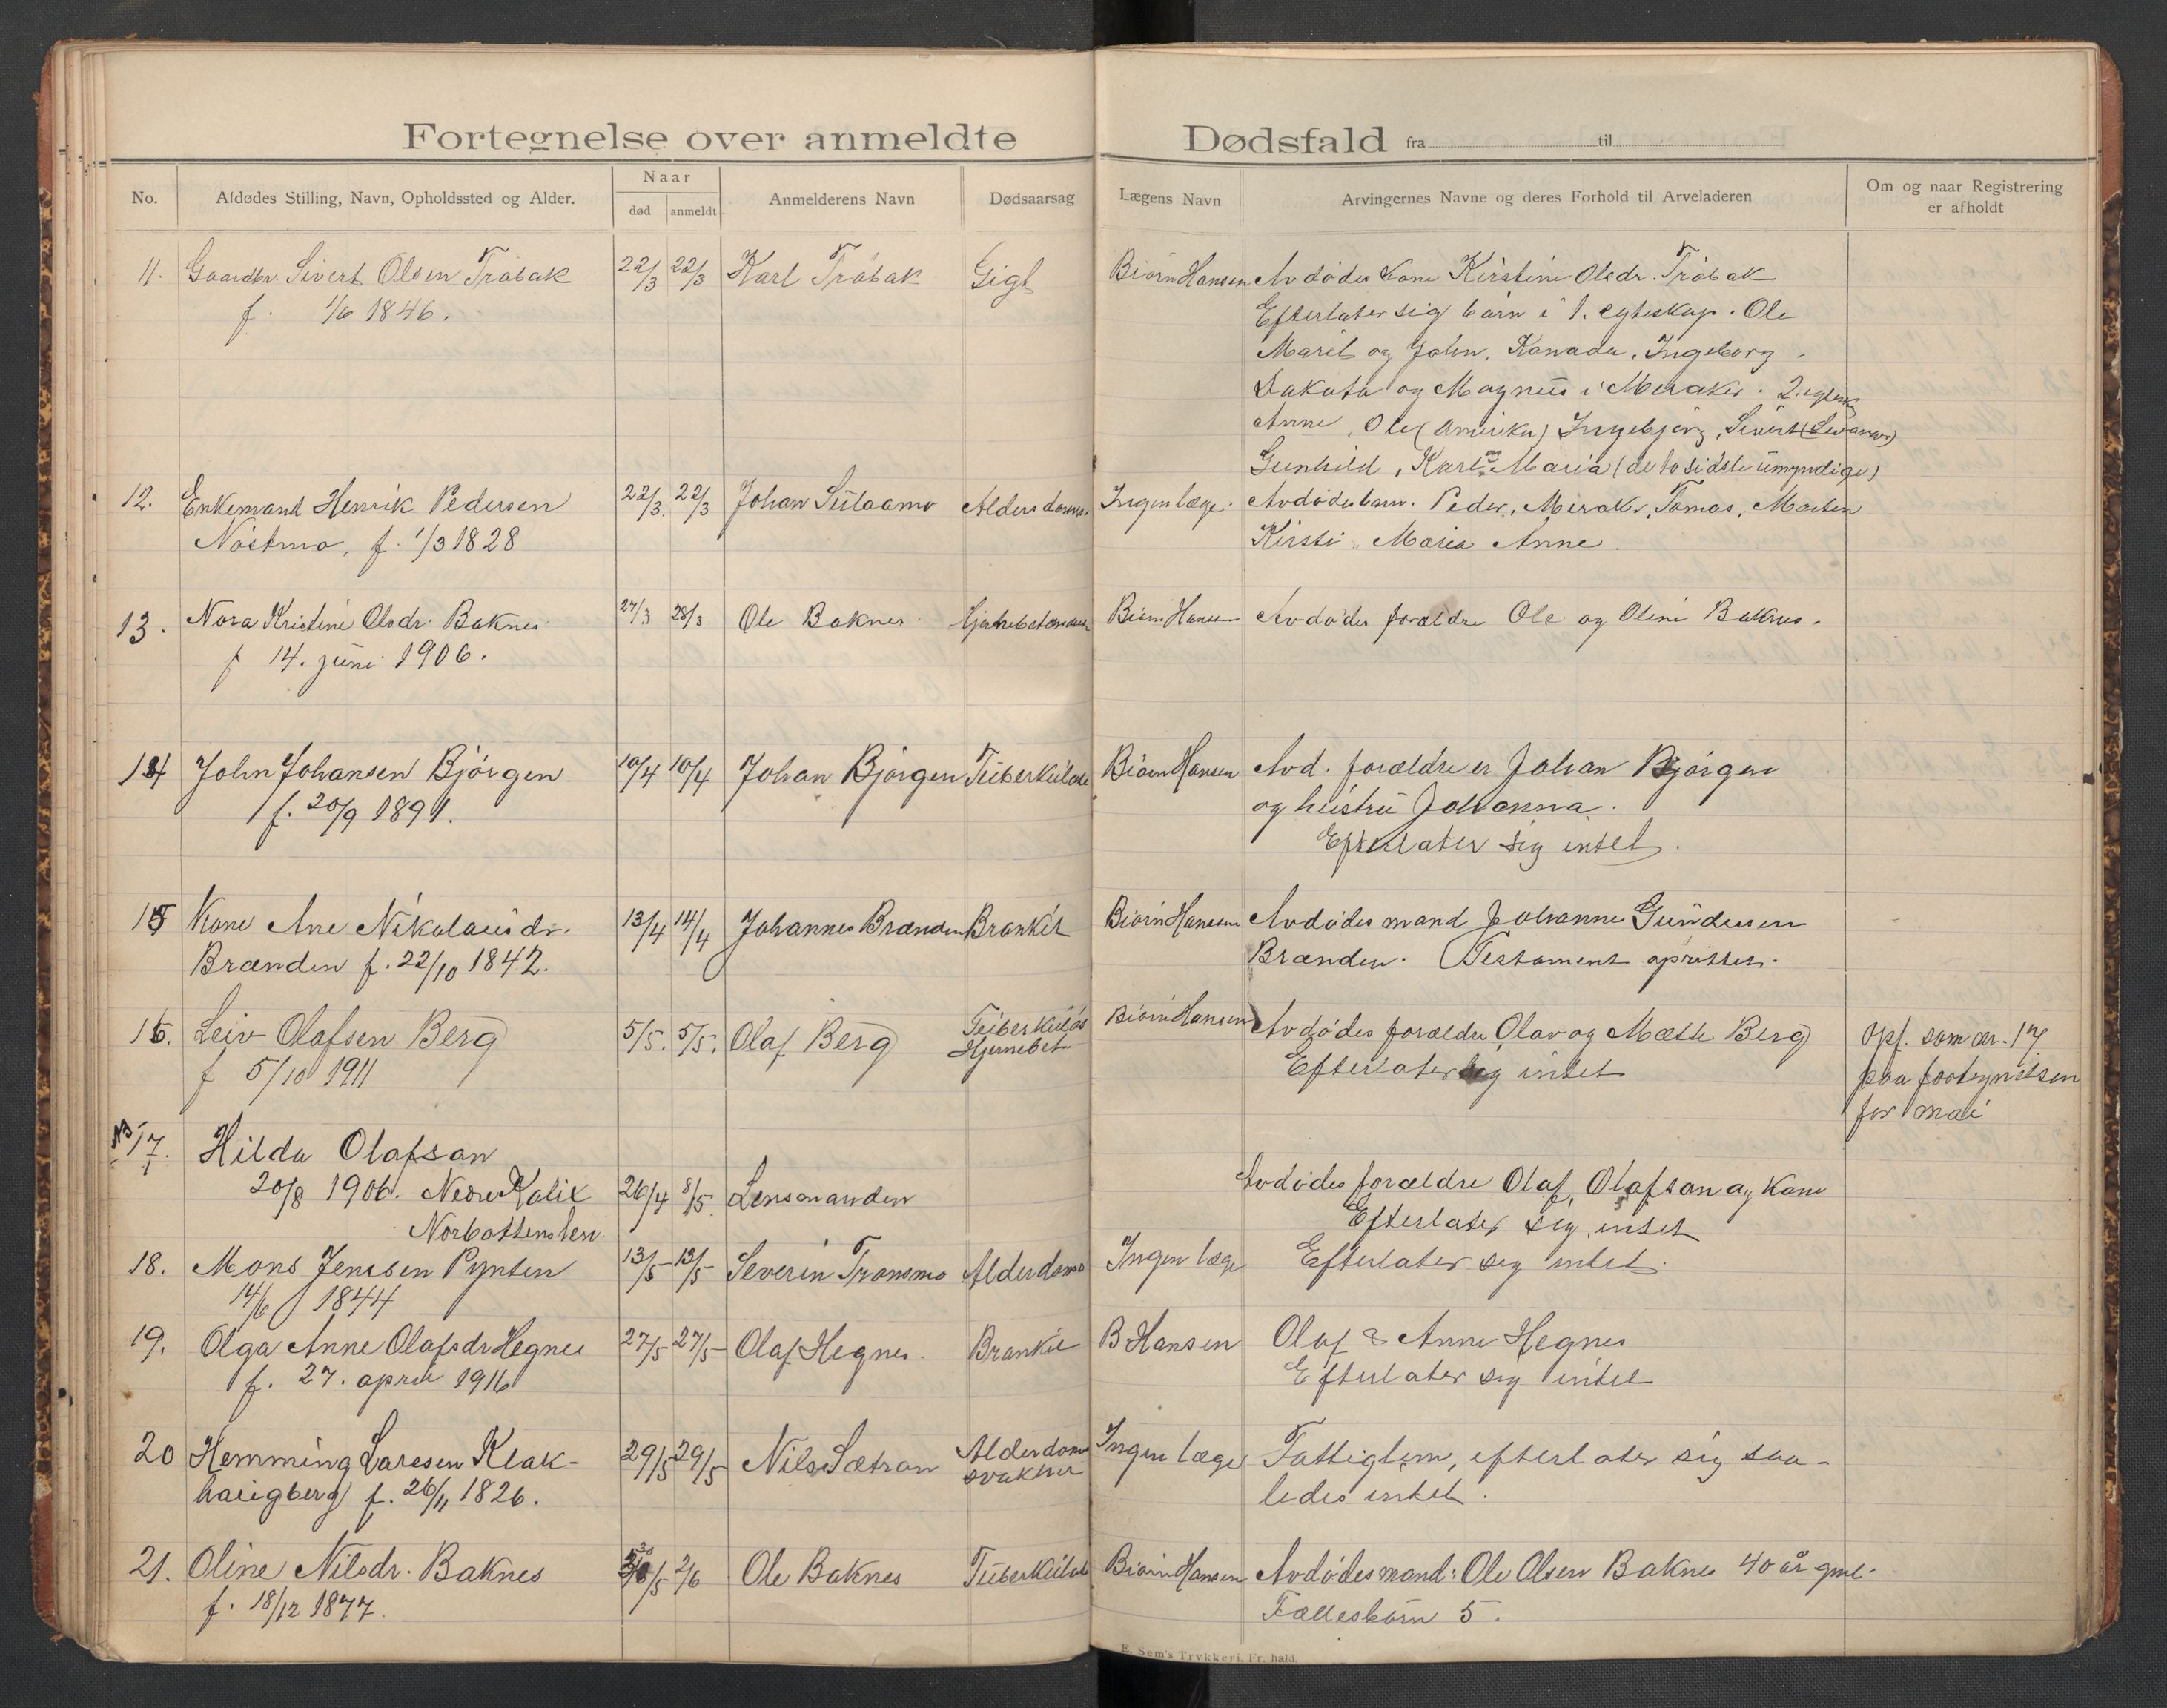 Fortegnelse over anmeldte Dødsfald fra til
No. Afdødes Stilling, Navn, Opholdssted og Alder. Naar død anmeldt Anmelderens Navn Dødsaarsag Lægens Navn Arvingernes Navne og deres Forhold til Arveladeren Om og naar Registrering er afholdt
11. Gaardbr. Sivert Olsen Tråbak 22/3 22/3 Karl Tråbak Gigt Biörn Hansen Avdödes kone Kirstine Olsdr. Tråbak
f. 1/6 1846. Efterlater sig barn i 1. egteskap. Ole
Marit og John, Kanada, Ingeborg
Dakota og Magnus i Meraker. 2. egtesk
Anne, Ole (Amerika) Ingebjörg, Sivert (Levanger)
Gunhild, Karl og Maria (de to sidste umyndige)
12. Enkemand Henrik Pedersen 22/3. 22/3 Johan Sulaamo Alderdoms. Ingen læge. Avdödes barn. Peder, Meraker, Tomas, Morten
Nöstmo, f. 1/3 1828 Kirsti, Maria Anne.
13. Nora Kristine Olsdr. Baknes 27/3 28/3 Ole Baknes Biörn Hansen Avdödes forældre Ole og Oline Baknes.
f 14. juni 1906.
14 John Johansen Björgen 10/4 10/4 Johan Björgen Tuberkulose Biörn Hansen Avd. forældre er Johan Björgen
f. 20/9 1891. og hustru Johanna.
Efterlater sig intet.
15 Kone Ane Nikolausdr. 13/4 14/4 Johannes Brænden Bronkit Biörn Hansen Avdödes mand Johannes Gundersen
Brænden f. 22/10 1842. Brænden. Testament oprettet.
16. Leiv Olafsen Berg 5/5. 5/5. Olaf Berg Tuberkulös Hjernebet Biörn Hansen Avdödes forældre Olav og Mætte Berg Opf. som nr. 17
f 5/10 1911 Efterlater sig intet paa fortegnelsen
for mai
NB 17. Hilda Olafsan
20/8 1906. Nedre Kalix 26/4 8/5. Lensmanden Avdödes forældre Olaf Olafsan og kone
Norbottenslen Efterlater sig intet
18. Mons Jensen Pynten 13/5 13/5 Severin Tronsmo Alderdom Ingen læge Efterlater sig intet.
14/6 1844
19. Olga Anne Olafsdr Hegnes 27/5 27/5 Olaf Hegnes. Bronkit B Hansen Olaf & Anne Hegnes
f. 27. april 1916 Efterlater sig intet
20 Hemming Larsen Klak- 29/5 29/5 Nils Sætran Alderdoms svakhet Ingen læge Fattiglem, efterlater sig saa-
haugberg f. 26/11 1826. ledes intet.
21. Oline Nilsdr. Baknes 30/5 2/6 Ole Baknes Tuberkulose Biörn Hansen Avdödes mand: Ole Olsen Baknes 40 år gml.
f. 18/12 1877. Fællesbarn 5.
E. Sem's Trykkeri, Fr. hald.